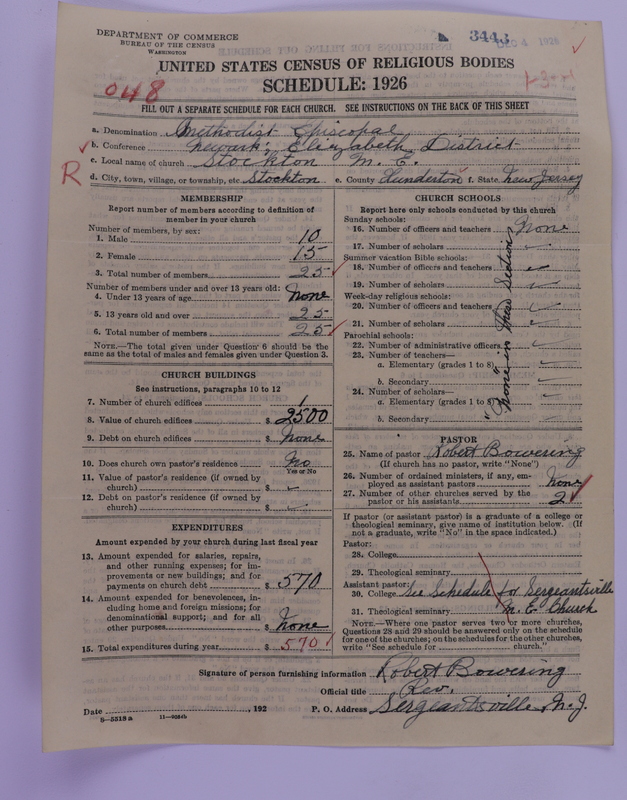 DEPARTMENT OF COMMERCE
BUREAU OF THE CENSUS
WASHINGTON
3443
DEC 4 1926
UNITED STATES CENSUS OF RELIGIOUS BODIES
SCHEDULE: 1926
048
FILL OUT A SEPARATE SCHEDULE FOR EACH CHURCH. SEE INSTRUCTIONS ON THE BACK OF THIS SHEET
a. Denomination Methodist Episcopal
b. Conference Newark; Elizabeth District
c. Local name of church Stockton M. E.
R
d. City, town, village, or township, etc. Stockton e. County Hunderton f. State New Jersey
MEMBERSHIP
Report number of members according to definition of
member in your church
Number of members, by sex:
1. Male 10
2. Female 15
3. Total number of members 25
Number of members under and over 13 years old:
4. Under 13 years of age None
5. 13 years old and over 25
6. Total number of members 25
NOTE.—The total given under Question 6 should be the
same as the total of males and females given under Question 3.
CHURCH BUILDINGS
See instructions, paragraphs 10 to 12
7. Number of church edifices 1
8. Value of church edifices $ 2500
9. Debt on church edifices $ None
10. Does church own pastor's residence No
Yes or No
11. Value of pastor's residence (if owned by
church) $
12. Debt on pastor's residence (if owned by
church) $
EXPENDITURES
Amount expended by your church during last fiscal year
13. Amount expended for salaries, repairs,
and other running expenses; for im-
provements or new buildings; and for
payments on church debt $ 570
14. Amount expended for benevolences, in-
cluding home and foreign missions; for
denominational support; and for all
other purposes $ None
15. Total expenditures during year $ 570
CHURCH SCHOOLS
Report here only schools conducted by this church
Sunday schools:
16. Number of officers and teachers None
17. Number of scholars
Summer vacation Bible schools:
18. Number of officers and teachers
19. Number of scholars
Week-day religious schools:
20. Number of officers and teachers
21. Number of scholars
Parochial schools:
22. Number of administrative officers
23. Number of teachers—
a. Elementary (grades 1 to 8)
b. Secondary
24. Number of scholars—
a. Elementary (grades 1 to 8)
b. Secondary
"None" in this Section
PASTOR
25. Name of pastor Robert Bowering
(If church has no pastor, write "None")
26. Number of ordained ministers, if any, em-
ployed as assistant pastors None
27. Number of other churches served by the
pastor or his assistants 2
If pastor (or assistant pastor) is a graduate of a college or
theological seminary, give name of institution below. (If
not a graduate, write "No" in the space indicated.)
Pastor:
28. College
29. Theological seminary
Assistant pastor:
30. College See Schedule for Sergeantsville
31. Theological seminary M. E. Church
NOTE.—Where one pastor serves two or more churches,
Questions 28 and 29 should be answered only on the schedule
for one of the churches; on the schedules for the other churches,
write "See schedule for church."
Signature of person furnishing information Robert Bowering
Official title Rev.
Date , 192 P. O. Address Sergeantsville, N. J.
8—5518 a 11—9034b